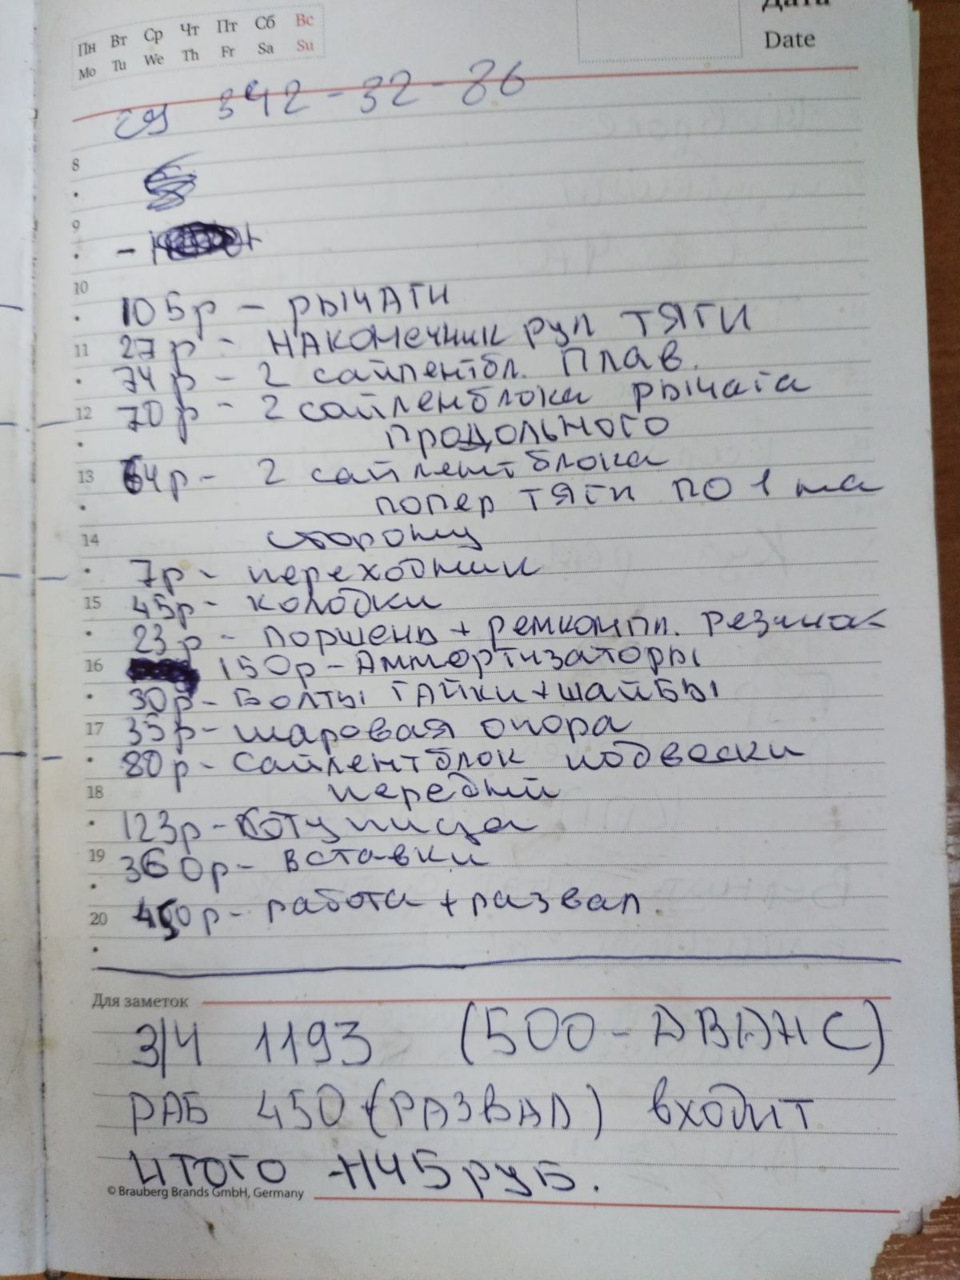 Дата
Пн Вт Ср Чт Пт Сб Вс
Mo Tu We Th Fr Sa Su
Date
342-32-86
8
9
10
105р - рычаги
11
27р - наконечник рул тяги
74р - 2 сайлентбл. плав.
12
70р - 2 сайленблока рычага
продольного
13
64р - 2 сайлентблока
попер тяги по 1 на
14
сторону
7р - переходник
15
45р - колодки
23р - поршень + ремкомпл. резинок
16
150р - Аммортизаторы
30р - Болты гайки + шайбы
17
35р - шаровая опора
80р - Сайлентблок подвески
18
передний
123р - ступица
19
360р - вставки
20
450р - работа + развал.
Для заметок
З/Ч 1193 (500 - АВАНС)
РАБ 450 (РАЗВАЛ) входит
ИТОГО 1145 руб.
© Brauberg Brands GmbH, Germany